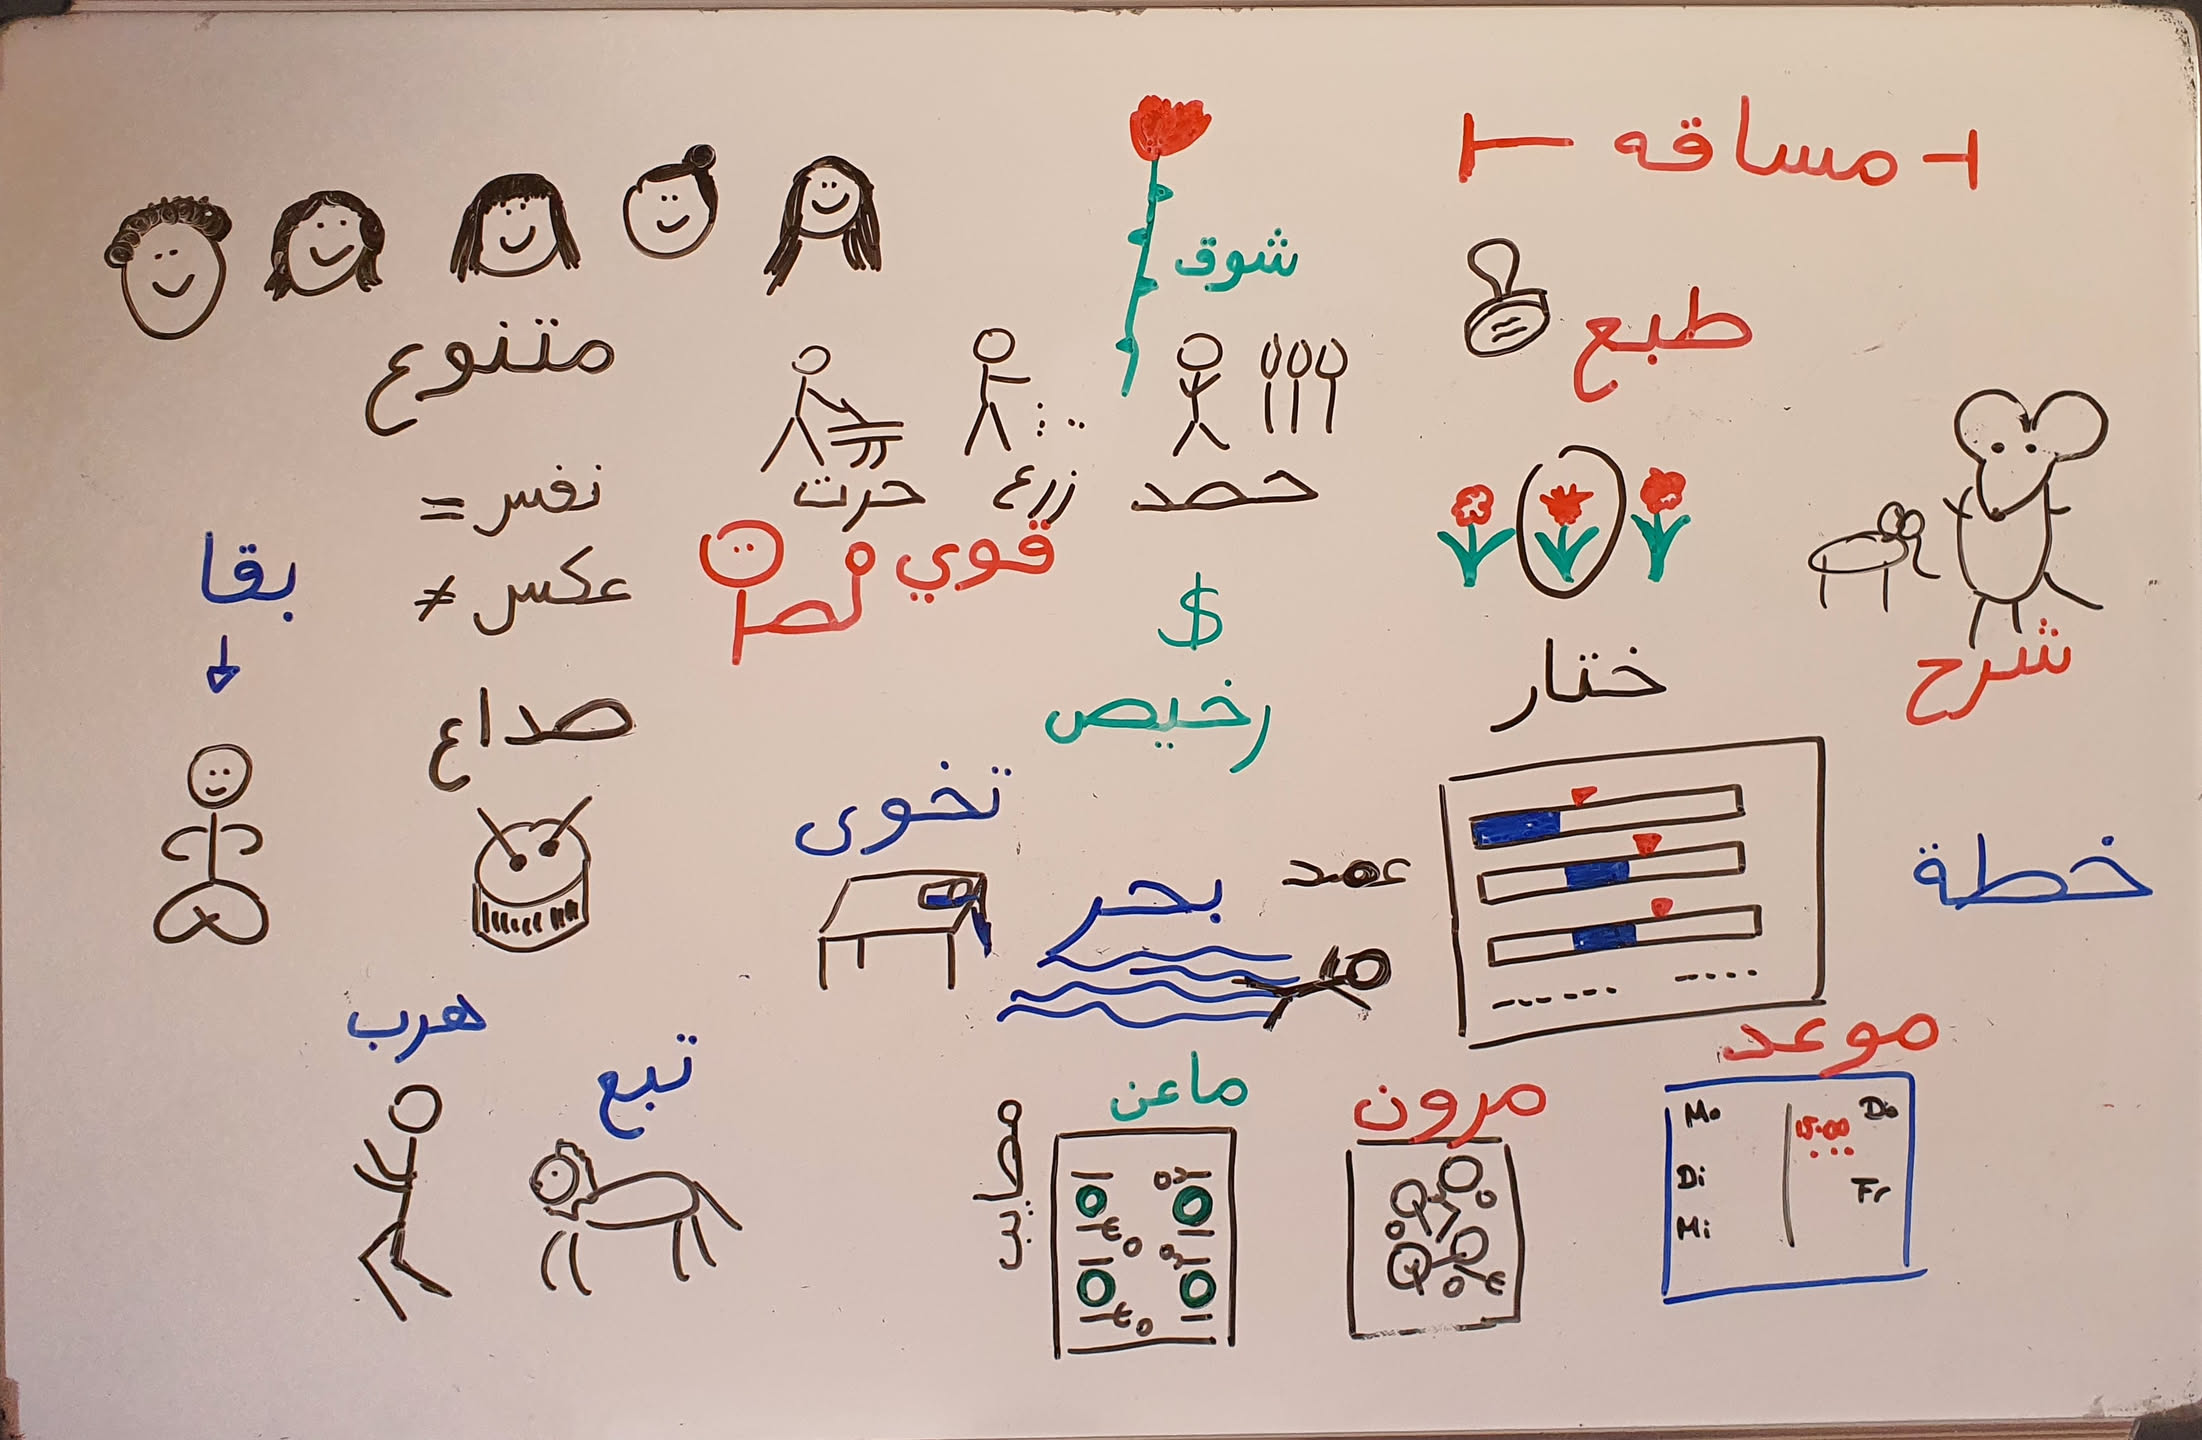 مساقه
شوق
طبع
متنوع
حصد
زرع
حرت
نفس =
عكس ≠
قوي
بقا
$
رخيص
ختار
شرح
صداع
تخوى
بحر
خطة
هرب
تبع
ماعن
مطايب
مرون
موعد
Mo
Di
Mi
15.00
Do
Fr